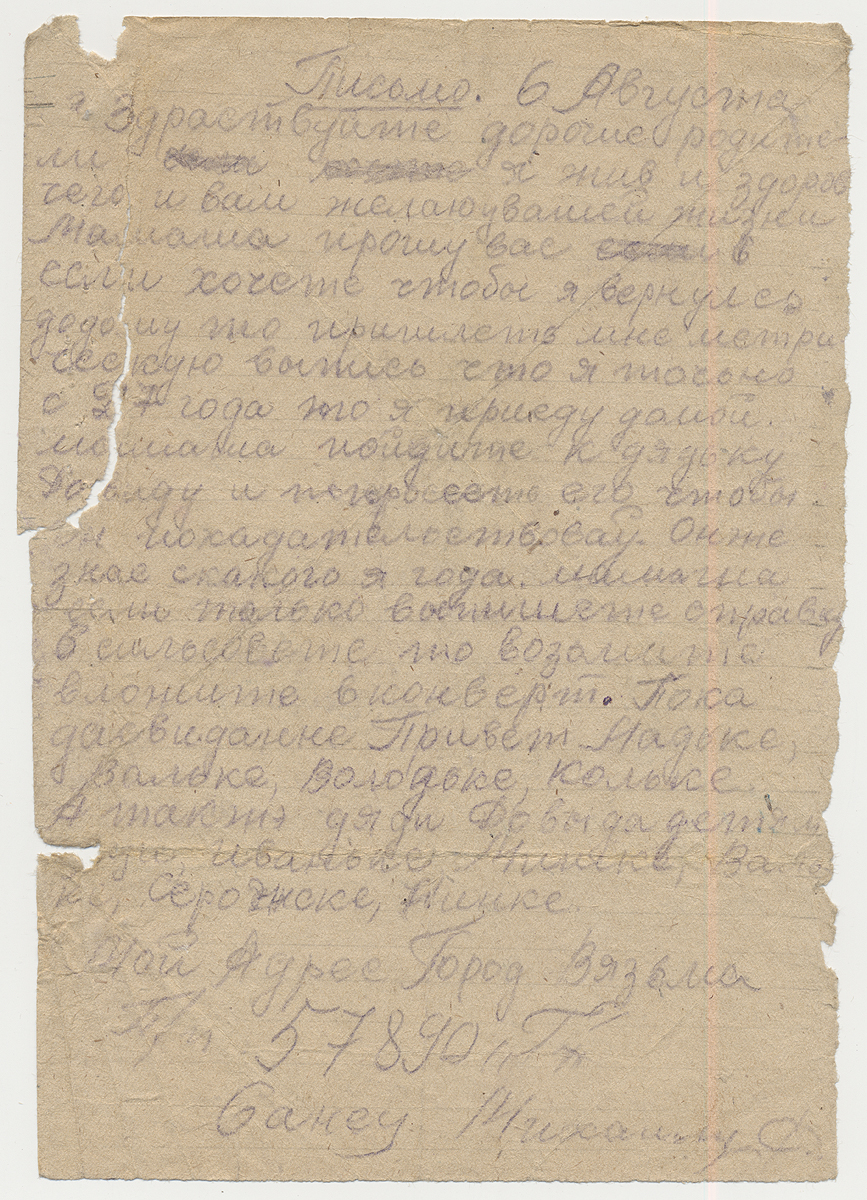 Письмо. 6 Августа
Здраствуйте дорогие родите-
ли я жив и здоров
чего и вам желаю вашей жизни
Мамаша прошу вас в
если хочете чтобы я вернулсо
додому то пришлеть мне метри
ческую выпись что я точьно
с 27 года то я приеду домой.
мамаша пойдите к дядьку
Довыду и попросеть его чтобы
он походательствовау. Он же
знае скакого я года. мамачка
если только выпишете справку
в сильсовете то возьмите
вложите вконверт. Пока
дасвидание Привет Надьке,
Вальке, Володьке, Кольке.
А также дяди Довыда детям
Иваньке, Мишке, Ва
ке, Серочке, Нинке.
Мой Адрес Город. Вязьма
П/я 57890 "Г"
Михаилу С.